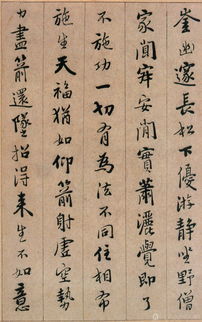 崟幽邃長松下優游静坐野僧
家闃寂安閒實蕭灑覺即了
不施功一切有為法不同住相布
施生天福猶如仰箭射虛空勢
力盡箭還墜招得来生不如意